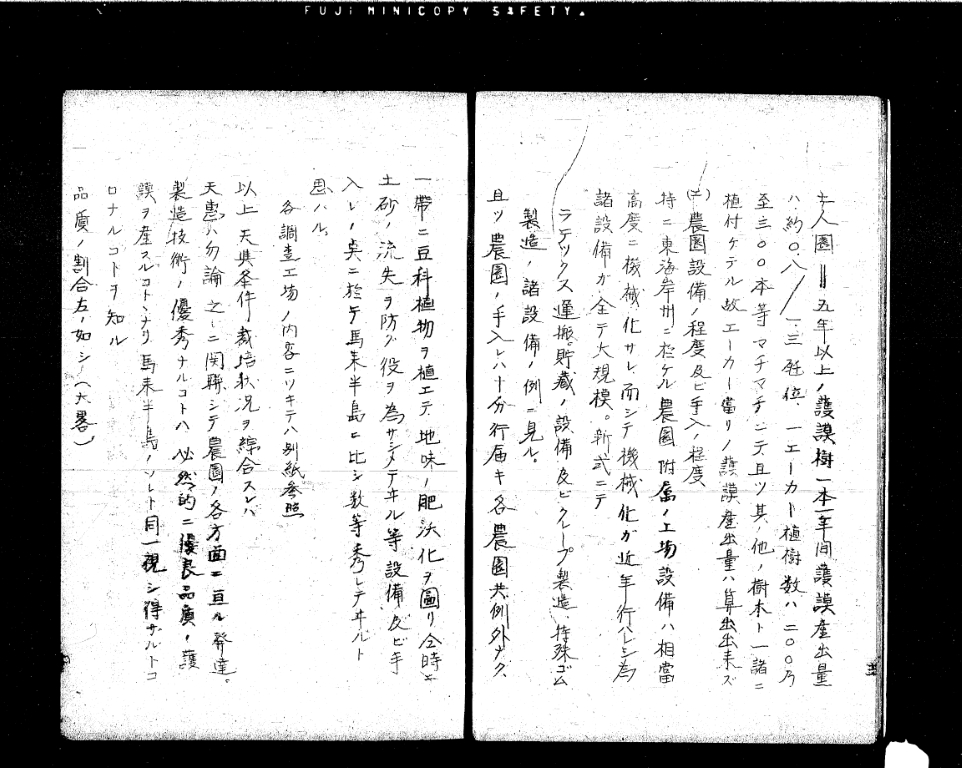 FUJI MINICOPY SAFETY.
人園 ‖ 五年以上ノ護謨樹一本一年間護謨産出量
ハ約〇.八/一.三 位、一エーカー植樹数ハ二〇〇乃
至三〇〇本等マチマチニテ且ツ其ノ他ノ樹木ト一諸ニ
植付ケテル故エーカー當リノ護謨産出量ハ算出出来ズ
(ニ)農園設備ノ程度及ビ手入ノ程度
特ニ東海岸州ニ於ケル農園附属ノ工場設備ハ相當
高度ニ機械化サレ而シテ機械化ガ近年行ハレシ為
諸設備ガ全テ大規模。新式ニテ
ラテックス運搬。貯蔵ノ設備及ビクレープ製造、特殊ゴム
製造ノ諸設備ノ例ニ見ル。
且ツ農園ノ手入レハ十分行届キ各農園共例外ナク、
一帯ニ豆科植物ヲ植エテ地味ノ肥沃化ヲ圖リ仝時ニ
土砂ノ流失ヲ防グ役ヲ為サシメテヰル等設備及ビ手
入レノ点ニ於テ馬来半島ニ比シ数等秀レテヰルト
思ハル。
各調査工場ノ内容ニツキテハ別紙参照
以上天与条件栽培状況ヲ綜合スレバ
天惠ハ勿論之ニ関聯シテ農園ノ各方面ニ亘ル發達。
製造技術ノ優秀ナルコトハ必然的ニ優良品質ノ護
謨ヲ産スルコトトナリ馬来半島ノソレト同一視シ得ザルトコ
ロナルコトヲ知ル
品質ノ割合左ノ如シ(大畧)